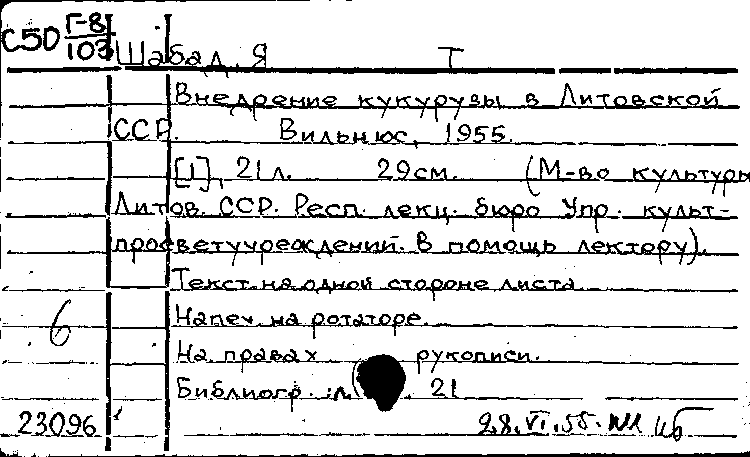 С50 Г-8/103
Шабад, Я Т
Внедрение кукурузы в Литовской
ССР. Вильнюс, 1955.
[1], 21 л. 29 см. (М-во культуры
Литов. ССР. Респ. лекц. бюро Упр. культ-
просветучреждений. В помощь лектору).
Текст на одной стороне листа
Напеч. на ротаторе.
6
На правах рукописи.
Библиогр.: л. 21
23096 28.VI.55.